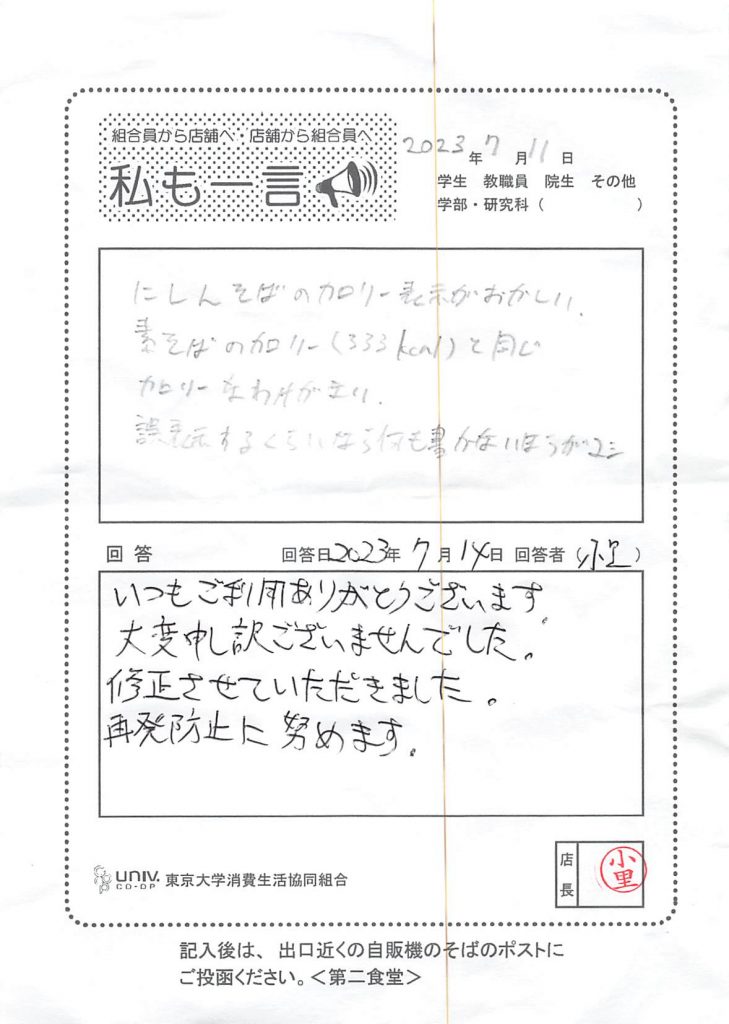 組合員から店舗へ・店舗から組合員へ
私も一言
2023年7月11日
学生 教職員 院生 その他
学部・研究科( )
にしんそばのカロリー表示がおかしい.
素そばのカロリー(333kcal)と同じ
カロリーなわけがない.
誤表示するくらいなら何も書かないほうがマシ
回答 回答日2023年7月14日 回答者(小里)
いつもご利用ありがとうございます。
大変申し訳ございませんでした。
修正させていただきました。
再発防止に努めます。
UNIV. CO-OP 東京大学消費生活協同組合
店長 小里
記入後は、出口近くの自販機のそばのポストに
ご投函ください。<第二食堂>